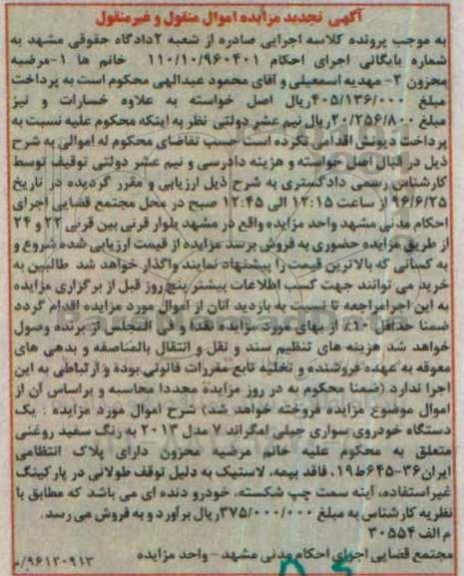 آگهی تجدید مزایده اموال منقول و غیرمنقول
به موجب پرونده کلاسه اجرایی صادره از شعبه ۲دادگاه حقوقی مشهد به
شماره بایگانی اجرای احکام ۱۱۰/۱۰/۹۶۰۴۰۱ خانم ها ۱-مرضیه
محزون ۲- مهدیه اسمعیلی و آقای محمود عبدالهی محکوم است به پرداخت
مبلغ ۴۰۵/۱۳۶/۰۰۰ریال اصل خواسته به علاوه خسارات و نیز
مبلغ ۲۰/۲۵۶/۸۰۰ریال نیم عشر دولتی نظر به اینکه محکوم علیه نسبت به
پرداخت دیونش اقدامی نکرده است حسب تقاضای محکوم له اموالی به شرح
ذیل در قبال اصل خواسته و هزینه دادرسی و نیم عشر دولتی توقیف توسط
کارشناس رسمی دادگستری به شرح ذیل ارزیابی و مقرر گردیده در تاریخ
۹۶/۶/۲۵ از ساعت ۱۲:۱۵ الی ۱۲:۴۵ صبح در محل مجتمع قضایی اجرای
احکام مدنی مشهد واحد مزایده واقع در مشهد بلوار قرنی بین قرنی ۲۲ و ۲۴
از طریق مزایده حضوری به فروش برسد مزایده از قیمت ارزیابی شده شروع و
به کسانی که بالاترین قیمت را پیشنهاد نمایند واگذار خواهد شد طالبین به
خرید می توانند جهت کسب اطلاعات بیشتر پنج روز قبل از برگزاری مزایده
به این اجرا مراجعه تا نسبت به بازدید آنان از اموال مورد مزایده اقدام گردد
ضمنا حداقل ۱۰٪ از بهای مورد مزایده نقدا و فی المجلس از برنده وصول
خواهد شد هزینه های تنظیم سند و نقل و انتقال بالمناصفه و بدهی های
معوقه به عهده فروشنده و تخلیه تابع مقررات قانونی بوده و ارتباطی به این
اجرا ندارد (ضمنا محکوم به در روز مزایده مجددا محاسبه و براساس آن از
اموال موضوع مزایده فروخته خواهد شد) شرح اموال مورد مزایده : یک
دستگاه خودروی سواری جیلی امگراند ۷ مدل ۲۰۱۳ به رنگ سفید روغنی
متعلق به محکوم علیه خانم مرضیه محزون دارای پلاک انتظامی
ایران۳۶-۶۴۵ط۱۹، فاقد بیمه، لاستیک به دلیل توقف طولانی در پارکینگ
غیراستفاده، آینه سمت چپ شکسته، خودرو دنده ای می باشد که مطابق با
نظریه کارشناس به مبلغ ۳۷۵/۰۰۰/۰۰۰ریال برآورد و به فروش می رسد.
م الف ۳۰۵۵۴
مجتمع قضایی اجرای احکام مدنی مشهد - واحد مزایده
۹۶۱۲۰۹۱۳/م